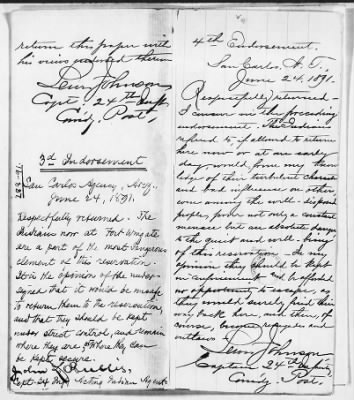 return this paper with
his views endorsed thereon
Lewis Johnson
Capt. 24th Inft
Comdg. Post,
3d Indorsement
San Carlos Agency, Arizg.,
June 24, 1891.
Respectfully returned. The
Indians now at Fort Wingate
are a part of the most dangerous
element of this reservation.
It is the opinion of the under-
signed that it would be unsafe
to return them to the reservation,
and that they should be kept
under strict control, and remain
where they are or where they can
be kept secure.
John L. Bullis.
Capt 24 Inf, Acting Indian Agent
4th Endorsement.
San Carlos, A.T.,
June 24, 1891.
Respectfully returned
I concur in the preceding
endorsement. The Indians
referred to, if allowed to return
here now, or at an early
day, would, from my know
ledge of their turbulent character
and bad influence on other
ones among the well-disposed
people, prove not only a constant
menace but an absolute danger
to the quiet and well-being
of this reservation. In my
opinion they should be kept
in confinement and be afforded
no opportunity to escape, as
they would surely find their
way back here, and then, of
course, become refugees and
outlaws
Lewis Johnson
Captain 24th Infantry,
Comdg. Post.